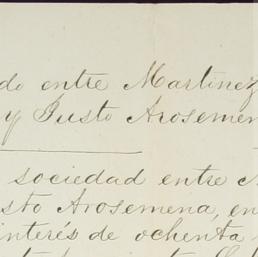 do entre Martinez
y Justo Arosemen
sociedad entre
sto Arosemena, en
interés de ochenta